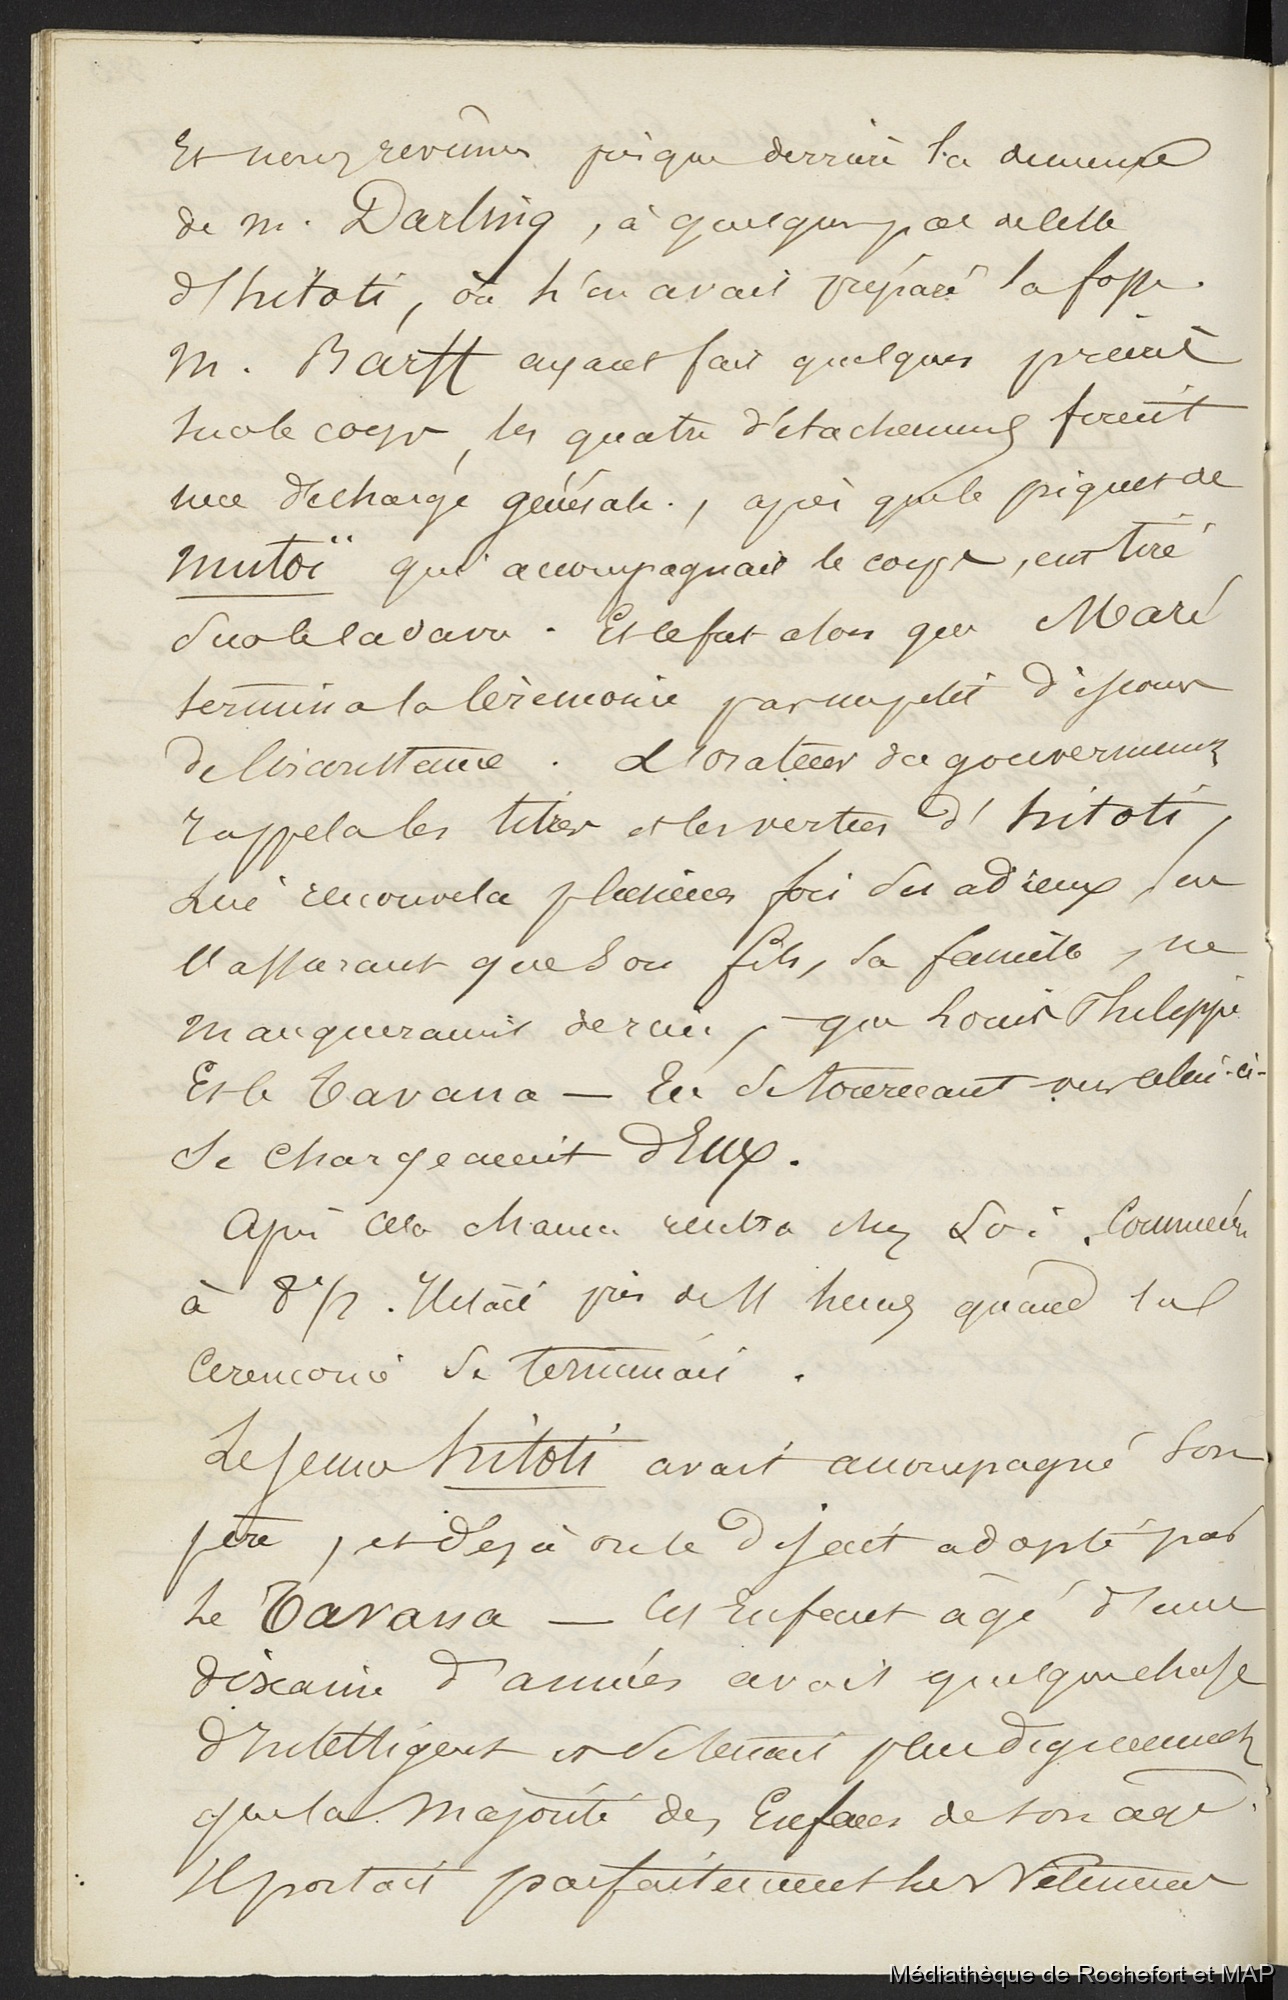 Et nous revînmes jusque derrière la demeure
de M. Darling, à quelques pas de celle
d'hitoti, où l'on avait préparé la fosse.
M. Barff ayant fait quelques prières
sur le corps, les quatre détachemens firent
une décharge générale, après que le piquet de
mutoï qui accompagnait le corps, eut tiré
sur le cadavre. Et ce fut alors que Maré
termina la Cérémonie par un petit discours
de circonstance. L'orateur du gouvernement
rappela les titres et les vertus d'hitoti,
Lui renouvela plusieurs fois ses adieux, en
l'assurant que son fils, sa famille, ne
manqueraient de rien, que Louis Philippe
Et le Tavana — En se tournant vers celui-ci -
se chargeaient d'Eux.
Après cela chacun rentra chez soi. Commencée
à 8 h 1/2. Il était près de 11 heures quand la
Ceremonie se terminait.
Le jeune hitoti avait accompagné son
père, et déjà on le disait adopté par
Le Tavana — Cet Enfant âgé d'une
dixaine d'années avait quelque chose
d'Intelligent et se tenait plus dignement
que la majorité des Enfans de son âge.
Il portait parfaitement les Vêtemens
Médiathèque de Rochefort et MAP